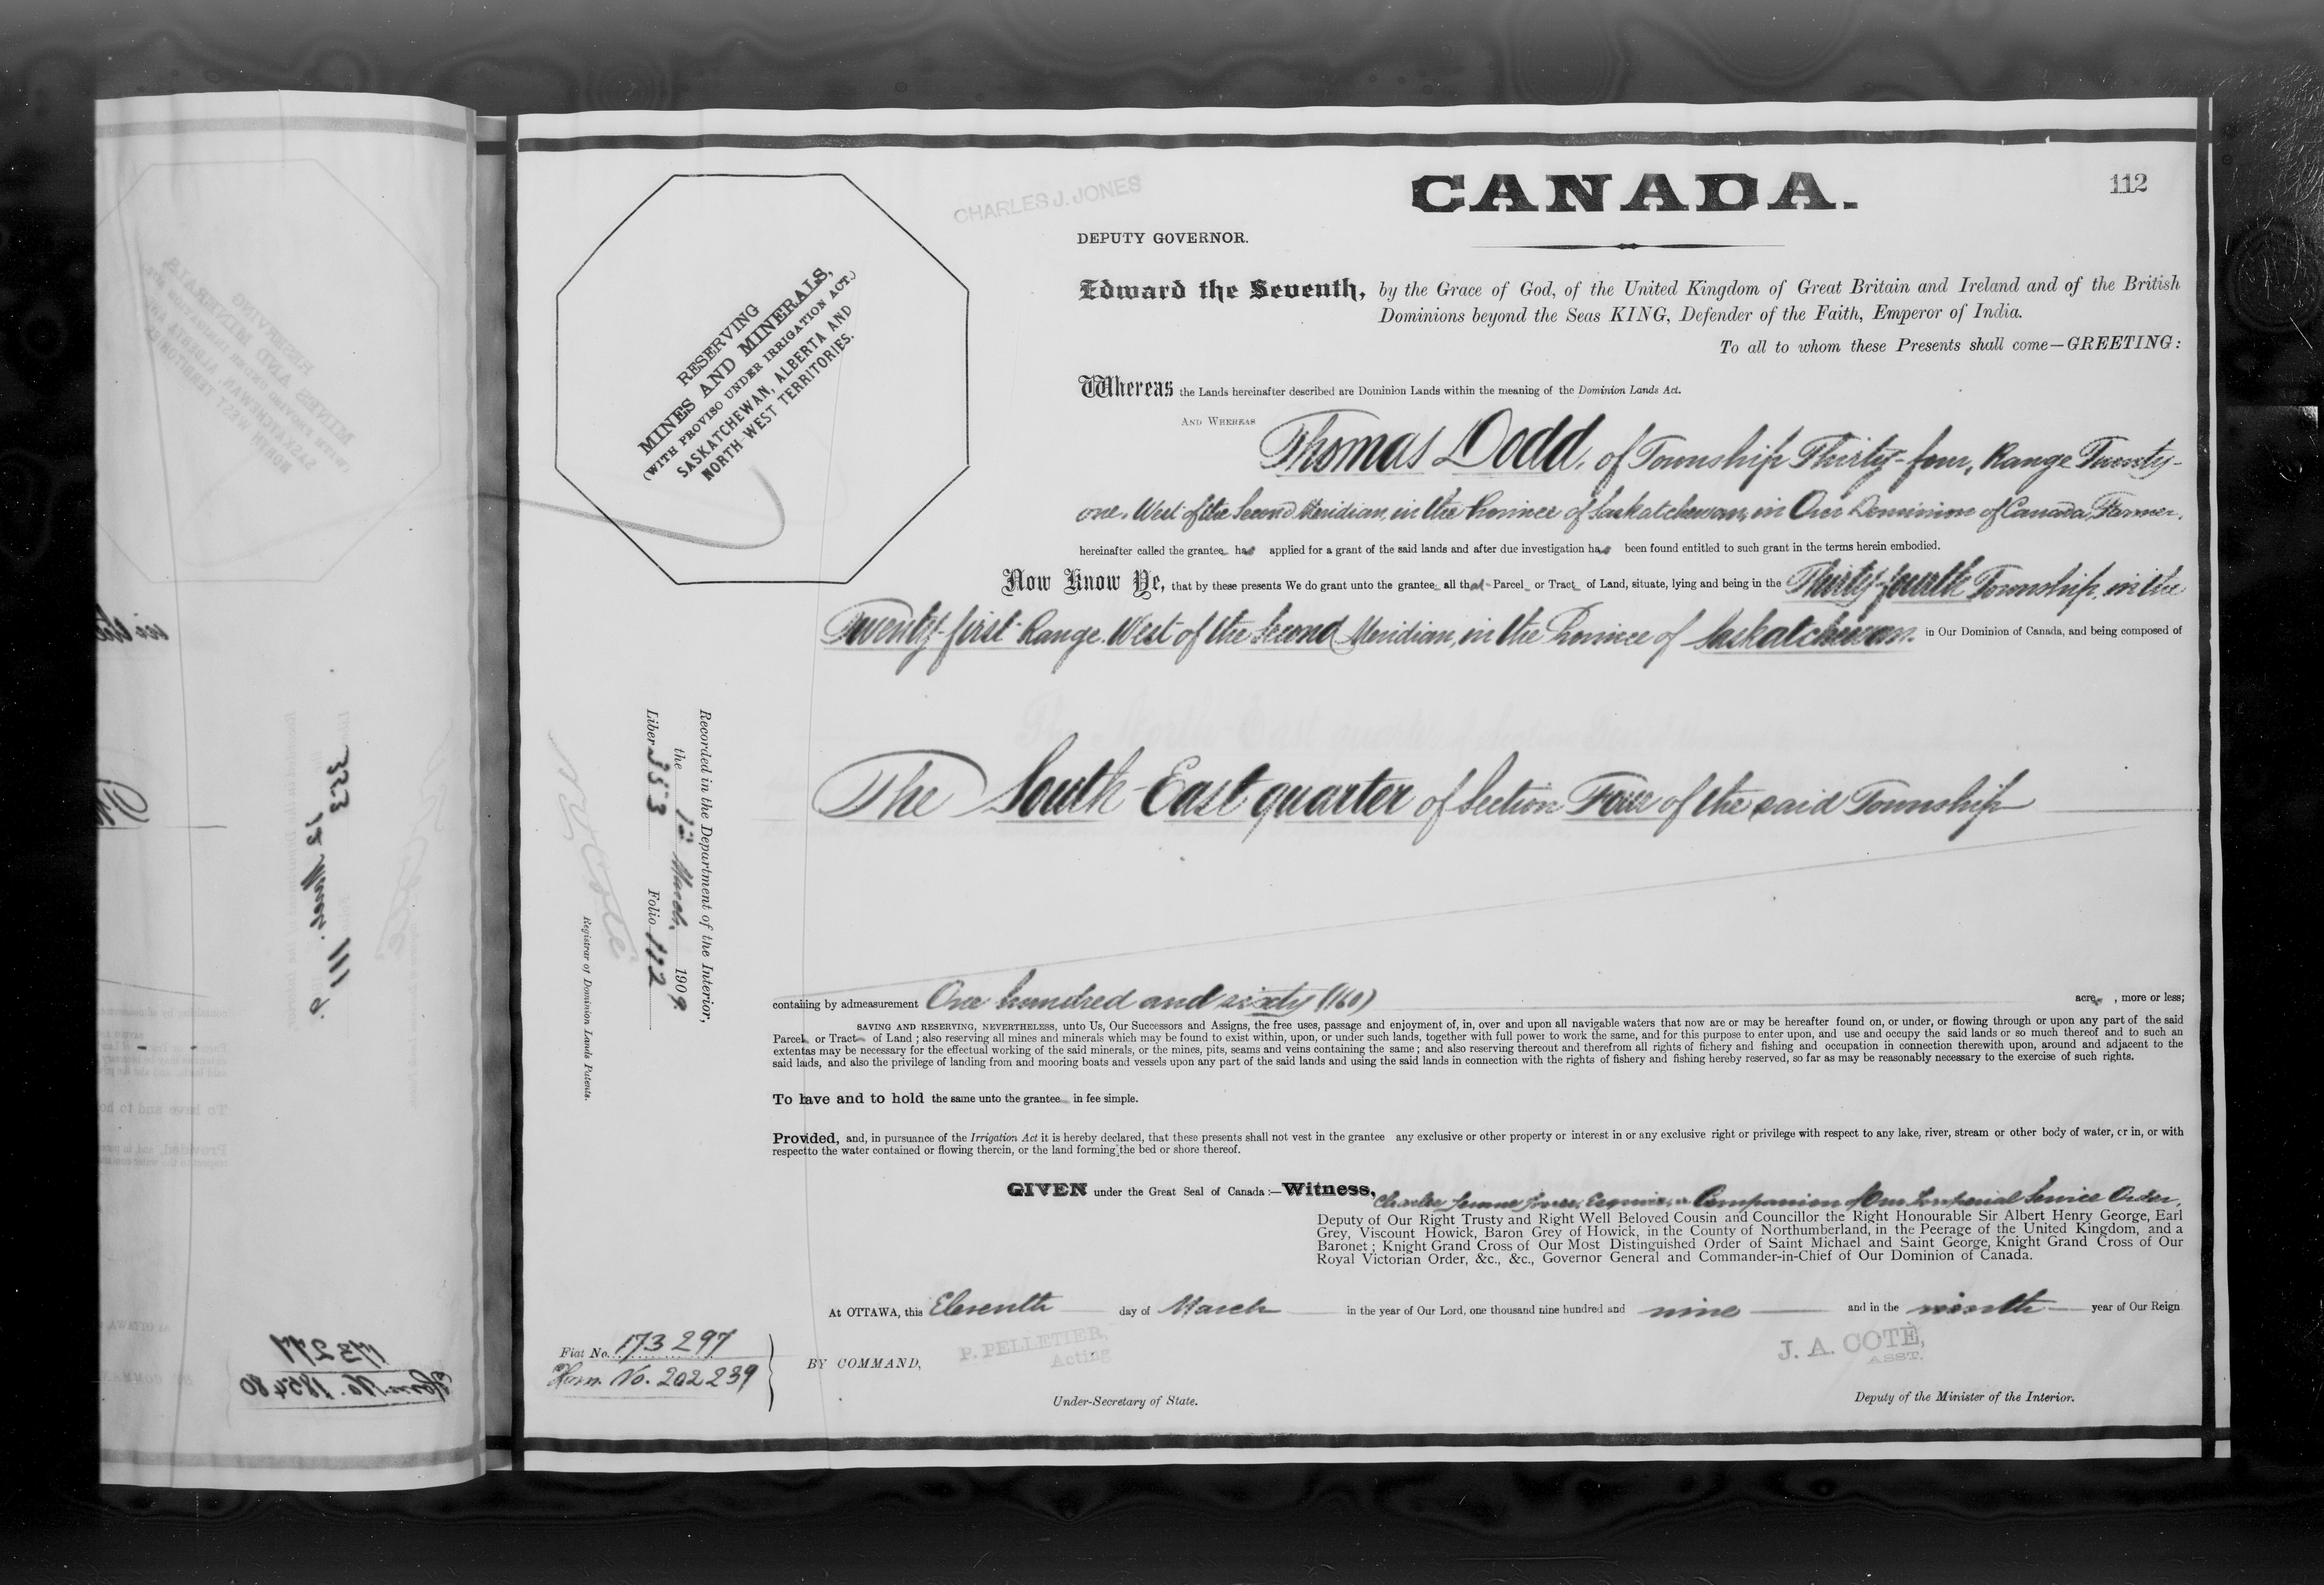 CANADA.
112
CHARLES J. JONES
DEPUTY GOVERNOR.
RESERVING
MINES AND MINERALS,
(WITH PROVISO UNDER IRRIGATION ACT.)
SASKATCHEWAN, ALBERTA AND
NORTH-WEST TERRITORIES.
Edward the Seventh, by the Grace of God, of the United Kingdom of Great Britain and Ireland and of the British
Dominions beyond the Seas KING, Defender of the Faith, Emperor of India.
To all to whom these Presents shall come—GREETING:
Whereas the Lands hereinafter described are Dominion Lands within the meaning of the Dominion Lands Act.
AND WHEREAS
Thomas Dodd, of Township Thirty-four, Range Twenty-
one, West of the Second Meridian, in the Province of Saskatchewan, in Our Dominion of Canada, Farmer,
hereinafter called the grantee has applied for a grant of the said lands and after due investigation has been found entitled to such grant in the terms herein embodied.
Now Know Ye, that by these presents We do grant unto the grantee all that Parcel or Tract of Land, situate, lying and being in the Thirty-fourth Township, in the
Twenty-first Range West of the Second Meridian, in the Province of Saskatchewan. in Our Dominion of Canada, and being composed of
The South East quarter of Section Four of the said Township
Recorded in the Department of the Interior,
the 12 March, 1909.
Liber 353 Folio 112
Registrar of Dominion Lands Patents.
containing by admeasurement One hundred and sixty (160) acres, more or less;
SAVING AND RESERVING, NEVERTHELESS, unto Us, Our Successors and Assigns, the free uses, passage and enjoyment of, in, over and upon all navigable waters that now are or may be hereafter found on, or under, or flowing through or upon any part of the said
Parcel or Tract of Land ; also reserving all mines and minerals which may be found to exist within, upon, or under such lands, together with full power to work the same, and for this purpose to enter upon, and use and occupy the said lands or so much thereof and to such an
extentas may be necessary for the effectual working of the said minerals, or the mines, pits, seams and veins containing the same ; and also reserving thereout and therefrom all rights of fishery and fishing and occupation in connection therewith upon, around and adjacent to the
said lands, and also the privilege of landing from and mooring boats and vessels upon any part of the said lands and using the said lands in connection with the rights of fishery and fishing hereby reserved, so far as may be reasonably necessary to the exercise of such rights.
To have and to hold the same unto the grantee in fee simple.
Provided, and, in pursuance of the Irrigation Act it is hereby declared, that these presents shall not vest in the grantee any exclusive or other property or interest in or any exclusive right or privilege with respect to any lake, river, stream or other body of water, or in, or with
respectto the water contained or flowing therein, or the land forming the bed or shore thereof.
GIVEN under the Great Seal of Canada:—Witness, Charles Jones, Esquire, a Companion of Our Imperial Service Order,
Deputy of Our Right Trusty and Right Well Beloved Cousin and Councillor the Right Honourable Sir Albert Henry George, Earl
Grey, Viscount Howick, Baron Grey of Howick, in the County of Northumberland, in the Peerage of the United Kingdom, and a
Baronet ; Knight Grand Cross of Our Most Distinguished Order of Saint Michael and Saint George, Knight Grand Cross of Our
Royal Victorian Order, &c., &c., Governor General and Commander-in-Chief of Our Dominion of Canada.
At OTTAWA, this Eleventh day of March in the year of Our Lord, one thousand nine hundred and nine and in the ninth year of Our Reign
Fiat No. 173297
Hom. No. 202239
BY COMMAND,
P. PELLETIER,
Acting
Under-Secretary of State.
J. A. COTÉ,
ASST.
Deputy of the Minister of the Interior.